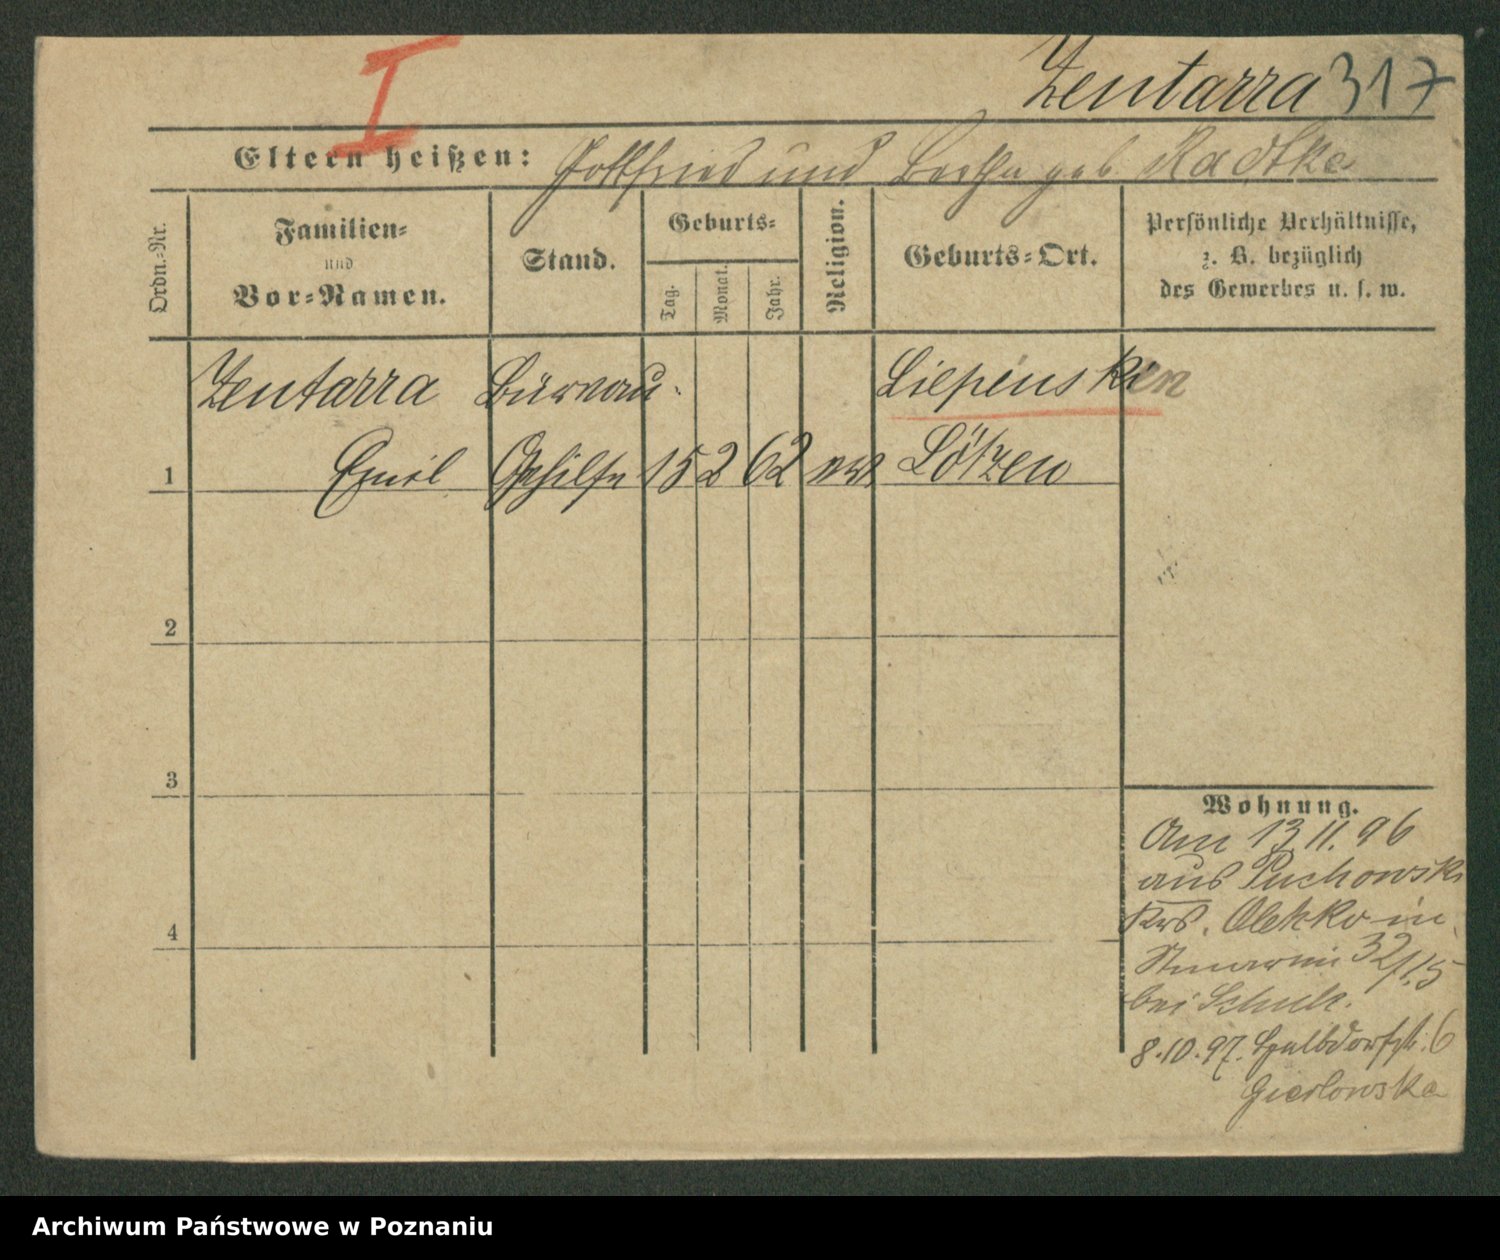 I
Zentarra 317
Eltern heißen: Gottfried und Bertha geb. Radtke
Ordn.-Nr.
Familien-
und
Vor-Namen.
Stand.
Geburts-
Tag.
Monat.
Jahr.
Religion.
Geburts-Ort.
Persönliche Verhältnisse,
z. B. bezüglich
des Gewerbes u. s. w.
Zentarra Büreau- Liepinsken
1 Emil Gehilfe 15 2 62 ev. Lötzen
2
3
4
Wohnung.
Am 13.11.96
aus Puchowsk
Krs. Oletzko in
32/1.15
bei Schulz.
8.10.97. Halbdorfstr. 6
Gierlowska
Archiwum Państwowe w Poznaniu